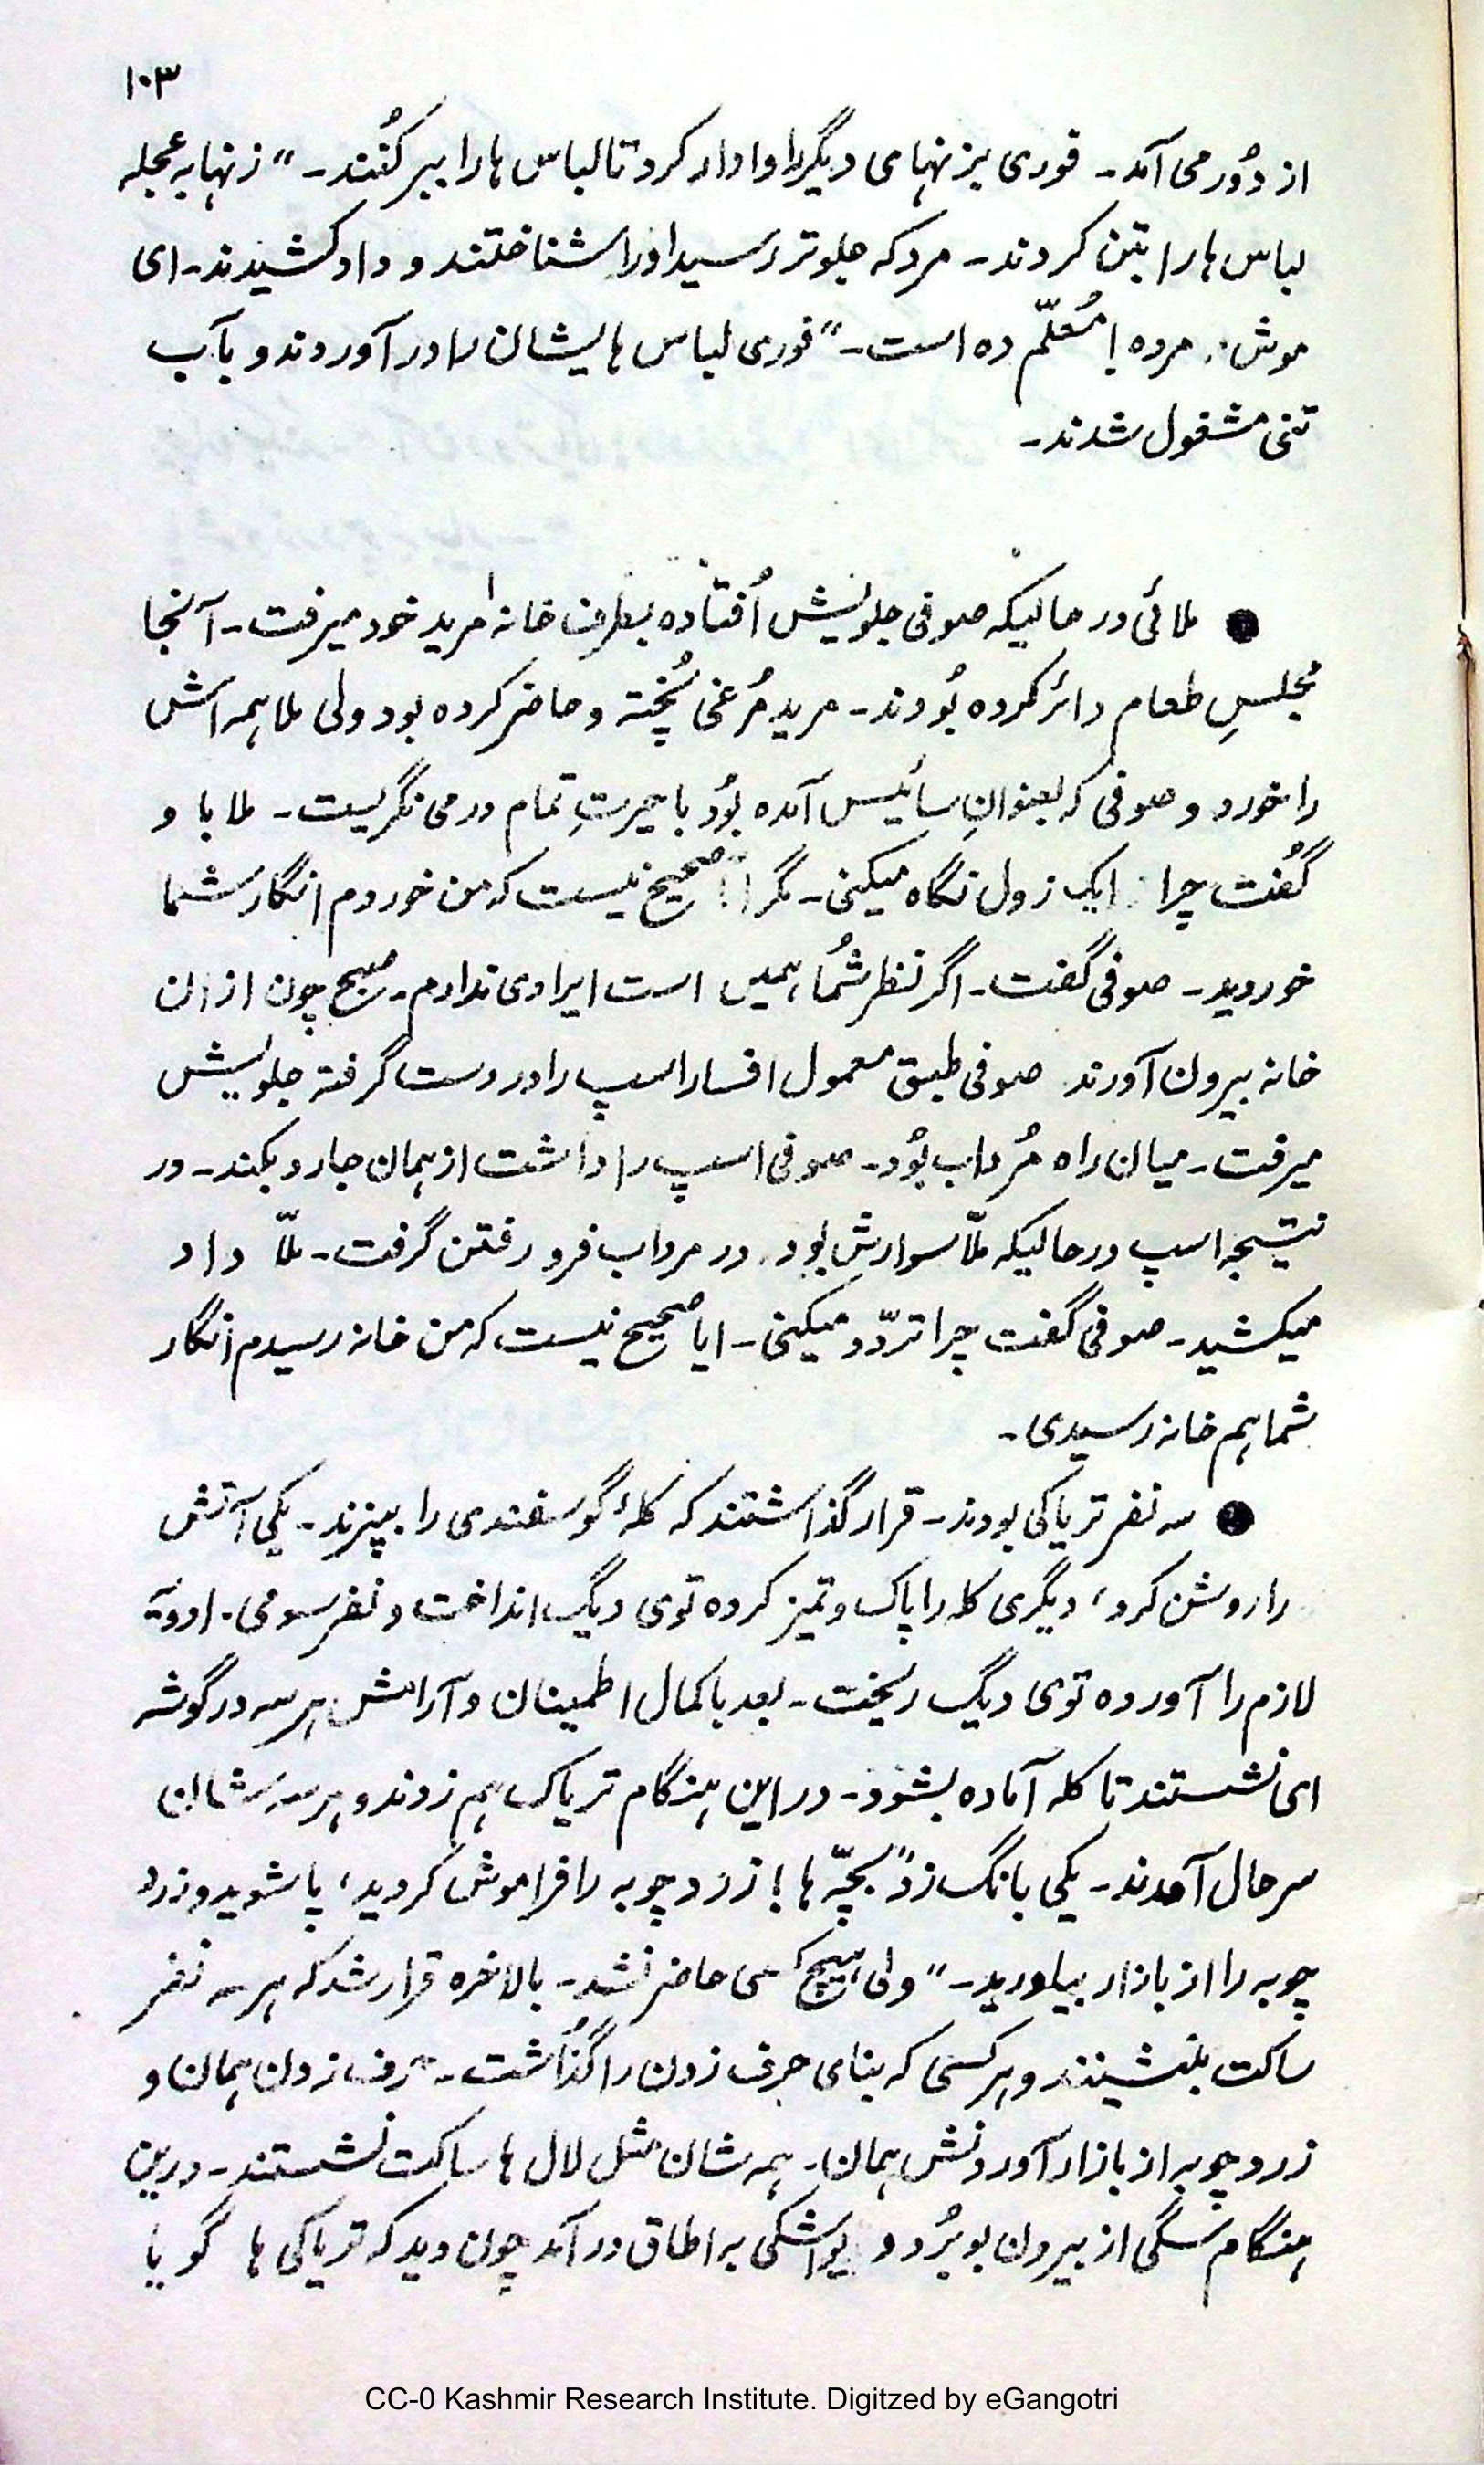 ۱۰۳
از دُور می آمد۔ فوری بزنهای دیگر را وادار کرد تا لباس ها را ببر کُنند۔" زنها به عجله
لباس ها را بتن کردند۔ مرد که جلوتر رسید او را شناختند و داد کشیدند۔ ای
موش مرده! مُعلّم ده است۔" فوری لباس هایشان را در آوردند و بآب
تنی مشغول شدند۔
● ملائی در حالیکه صوفی جلویش اُفتاده بطرف خانه مرید خود میرفت۔ آنجا
مجلسِ طعام دائر کرده بُودند۔ مرید مُرغی پُخته و حاضر کرده بود ولی ملا همه اش
را خورد و صوفی که بعنوانِ سائیس آمده بُود با حیرتِ تمام درمی نگریست۔ ملا با و
گُفت چرا زول نگاه میکنی۔ مگر صحیح نیست که من خوردم انگار شما
خوردید۔ صوفی گفت۔ اگر نظر شُما همیں است ایرادی ندارم۔ صبح چون از ان
خانه بیرون آورند صوفی طبق معمول افسار اسپ را در دست گرفته جلویش
میرفت۔ میان راه مُرداب بُود۔ صوفی اسپ را داشت از همان جا رد بکند۔ در
نتیجه اسپ در حالیکه ملّا سوارش بود در مرداب فرو رفتن گرفت۔ ملّا داد
میکشید۔ صوفی گفت چرا تردّد میکنی۔ ایا صحیح نیست که من خانه رسیدم انگار
شما هم خانه رسیدی۔
● سه نفر تریاکی بودند۔ قرار گذاشتند که کلۂ گوسفندی را بپزند۔ یکی آتش
را روشن کرد، دیگری کله را پاک و تمیز کرده توی دیگ انداخت و نفر سومی ادویۂ
لازم را آورده توی دیگ ریخت۔ بعد با کمال اطمینان و آرامش هر سه در گوشه
ای نشستند تا کله آماده بشود۔ در این هنگام تریاک هم زدند و هر سه شان
سرحال آمدند۔ یکی بانگ زد" بچّه ها! زردچوبه را فراموش کردید، پا شوید و زرد
چوبه را از بازار بیاورید۔" ولی هیچ کسی حاضر نشد۔ بالاخره قرار شد که هر سه نفر
ساکت بنشینند و هر کسی که بنای حرف زدن را گذاشت۔ حرف زدن همان و
زردچوبه از بازار آوردنش همان۔ همه شان مثل لال ها ساکت نشستند۔ درین
هنگام سگی از بیرون بو بُرد و یواشکی به اطاق در آمد چون دید که تریاکی ها گویا
CC-0 Kashmir Research Institute. Digitzed by eGangotri